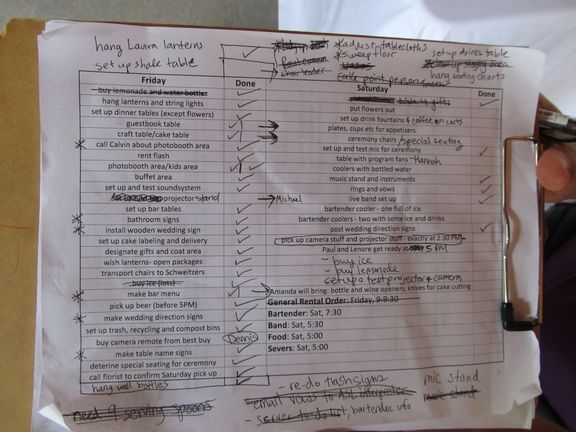 hang Laura lanterns
set up shade table
*adjust tablecloths
*sweep floor
set up drinks table
hang seating charts
Friday Done
buy lemonade and water bottles
hang lanterns and string lights
set up dinner tables (except flowers)
guestbook table
craft table/cake table
* call Calvin about photobooth area
rent flash
photobooth area/kids area
buffet area
set up and test soundsystem
projector stand
set up bar tables
* bathroom signs
* install wooden wedding sign
set up cake labeling and delivery
designate gifts and coat area
wish lanterns- open packages
transport chairs to Schweitzers
buy ice (lots)
* make bar menu
pick up beer (before 5PM)
* make wedding direction signs
set up trash, recycling and compost bins
buy camera remote from best buy Dennis
* make table name signs
deterine special seating for ceremony
call florist to confirm Saturday pick up
hang wall bottles
need 9 serving spoons
Saturday Done
put flowers out
set up drink fountains & coffee on carts
plates, cups etc for appetizers
ceremony chairs /special seating
set up and test mic for ceremony
table with program fans -Hannah
coolers with bottled water
music stand and instruments
rings and vows
Michael live band set up
bartender cooler - one full of ice
bartender coolers - two with some ice and drinks
post wedding direction signs
pick up camera stuff and projector stuff - exactly at 2:30 PM
Paul and Lenore get ready at 5 PM
- buy ice
- buy lemonade
setup & test projector & camera
Amanda will bring: bottle and wine openers, knives for cake cutting
General Rental Order: Friday, 9-9:30
Bartender: Sat, 7:30
Band: Sat, 5:30
Food: Sat, 5:00
Severs: Sat, 5:00
- re-do trash signs
- email vows to ASL interpreter
- server to do list, bartender info
mic stand